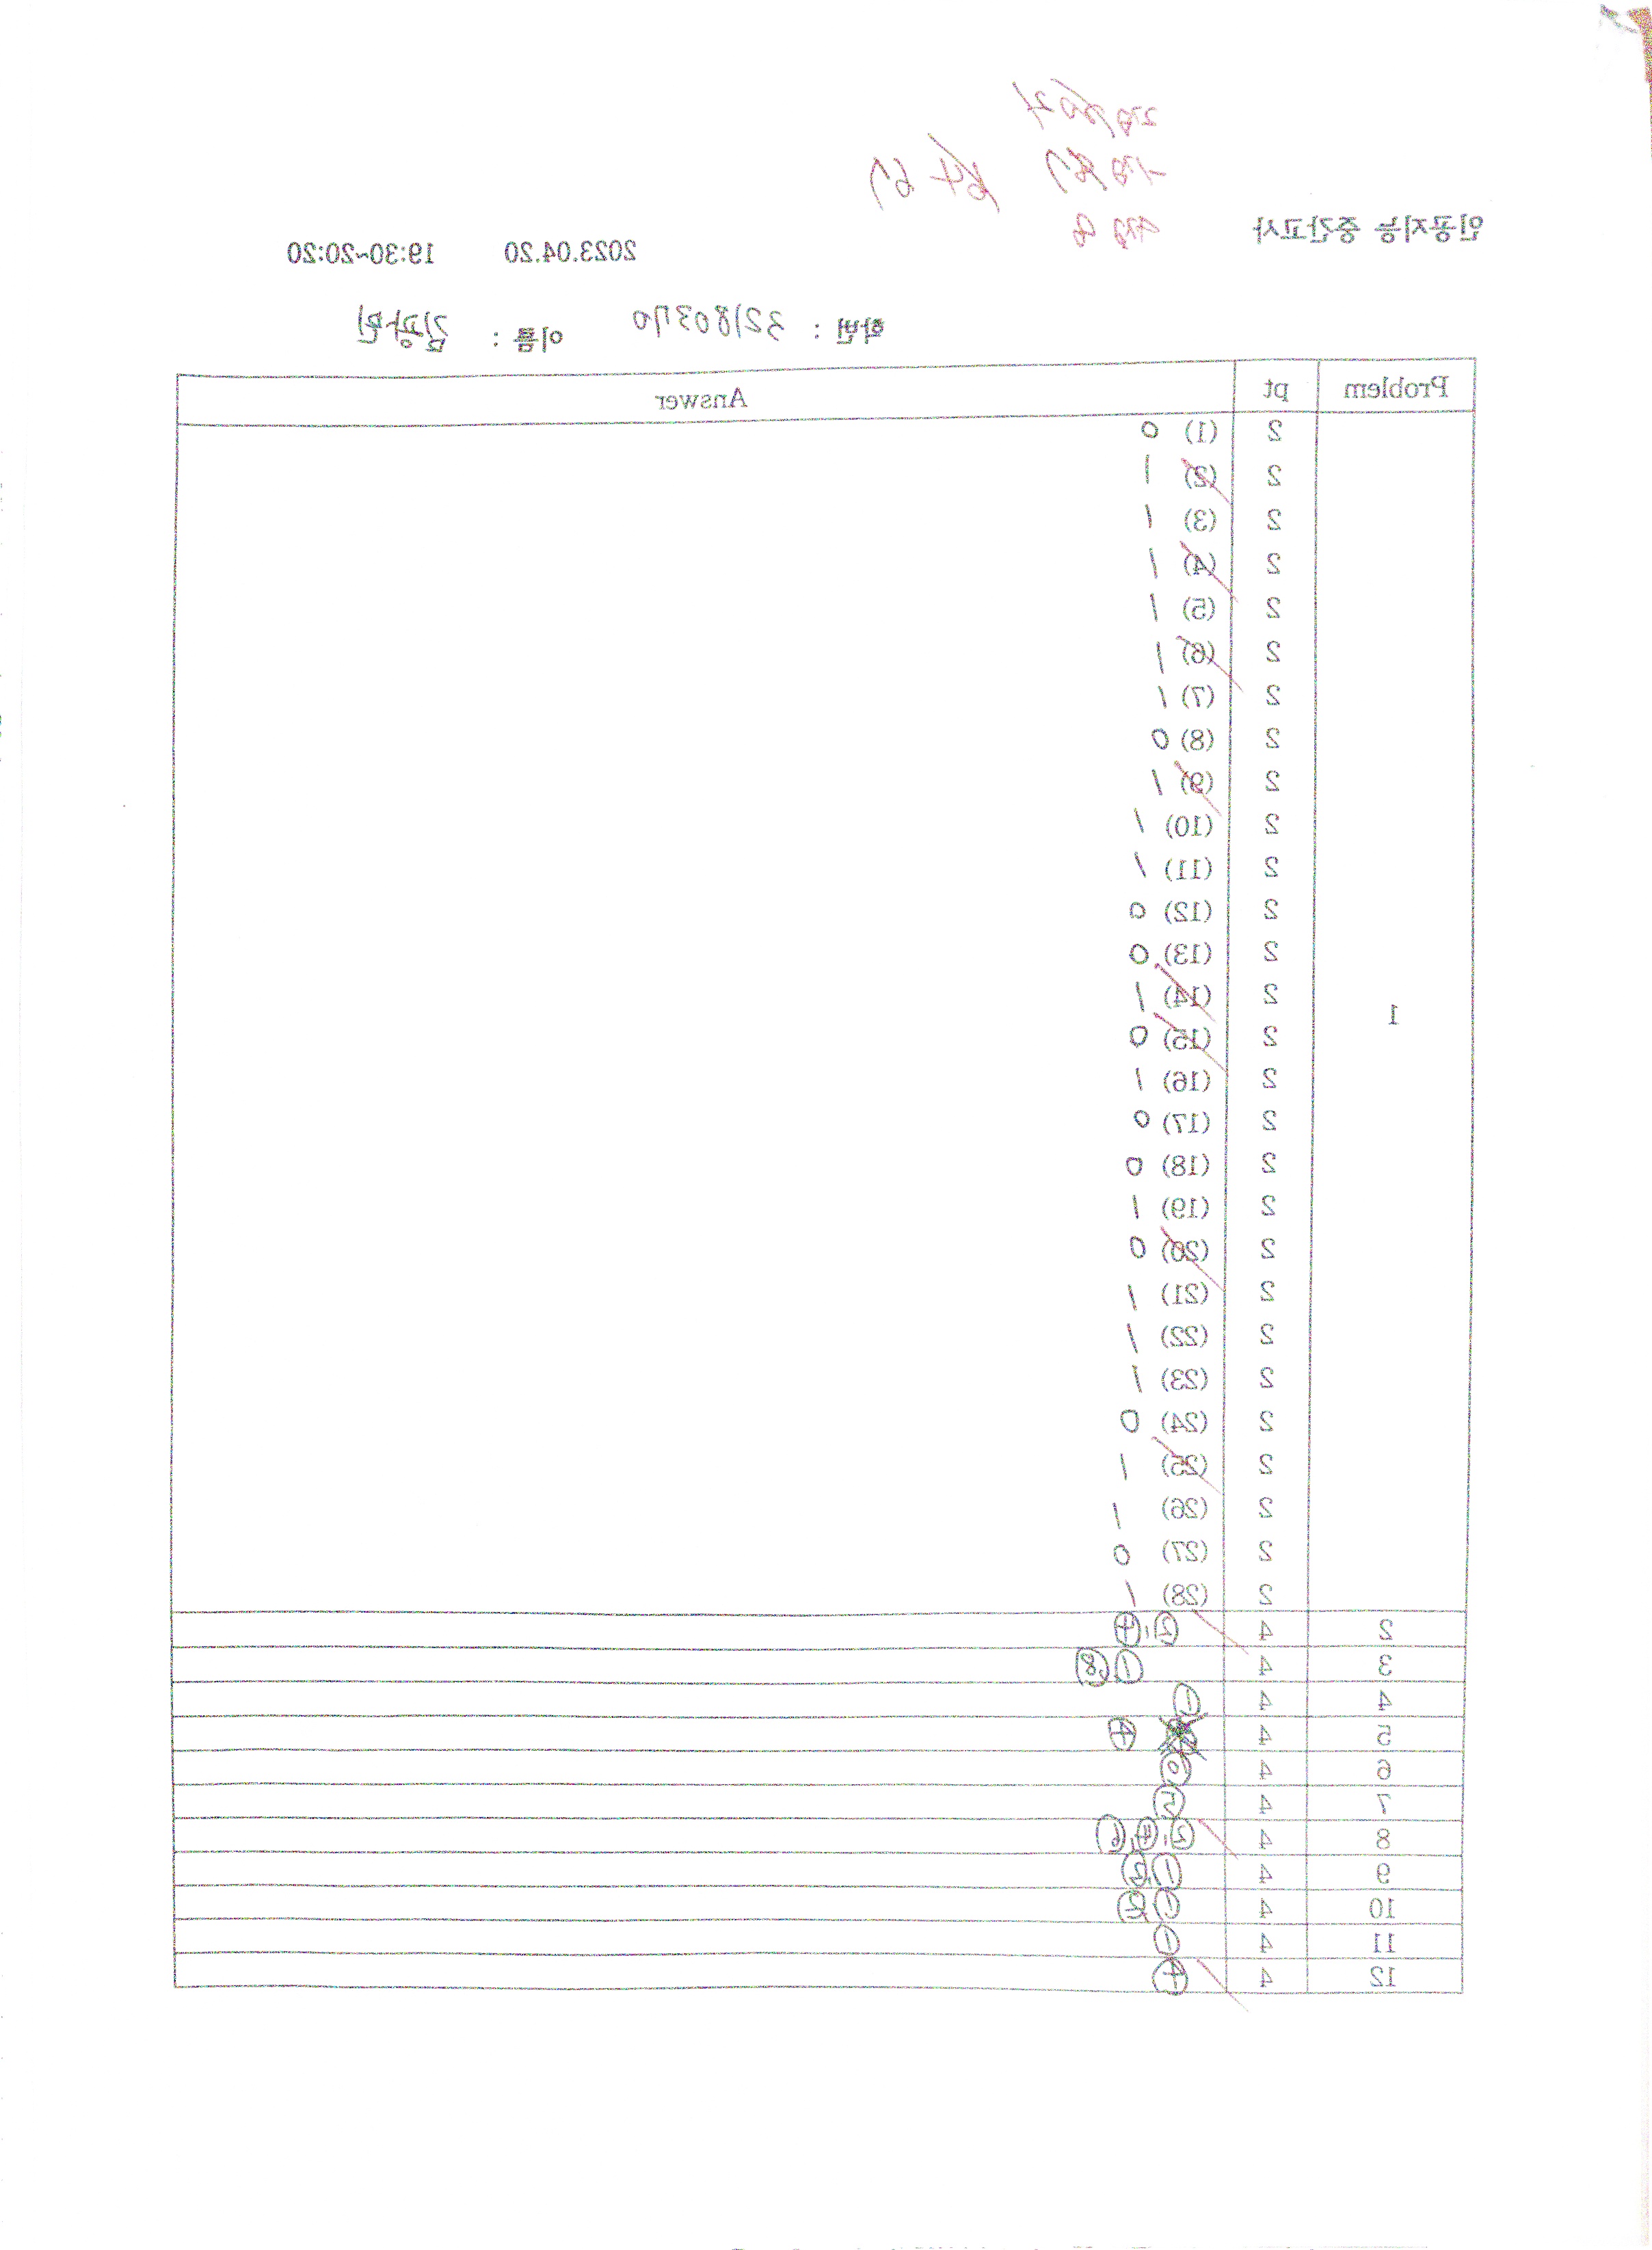 인공지능 중간고사
2023.04.20 19:30~20:20
학번 : 32180370 이름 :
Problem pt Answer
1
2 (1) 0
2 (2) 1
2 (3) 1
2 (4) 1
2 (5) 1
2 (6) 1
2 (7) 1
2 (8) 0
2 (9) 1
2 (10) 1
2 (11) 1
2 (12) 0
2 (13) 0
2 (14) 1
2 (15) 0
2 (16) 1
2 (17) 0
2 (18) 0
2 (19) 1
2 (20) 0
2 (21) 1
2 (22) 1
2 (23) 1
2 (24) 0
2 (25) 1
2 (26) 1
2 (27) 0
2 (28) 1
2 4 ②, ④
3 4 ① ⑧
4 4 ①
5 4 ④
6 4 ⓪
7 4 ⑤
8 4 ②, ④, ⑥
9 4 ①
10 4 ①
11 4 ①
12 4 ④